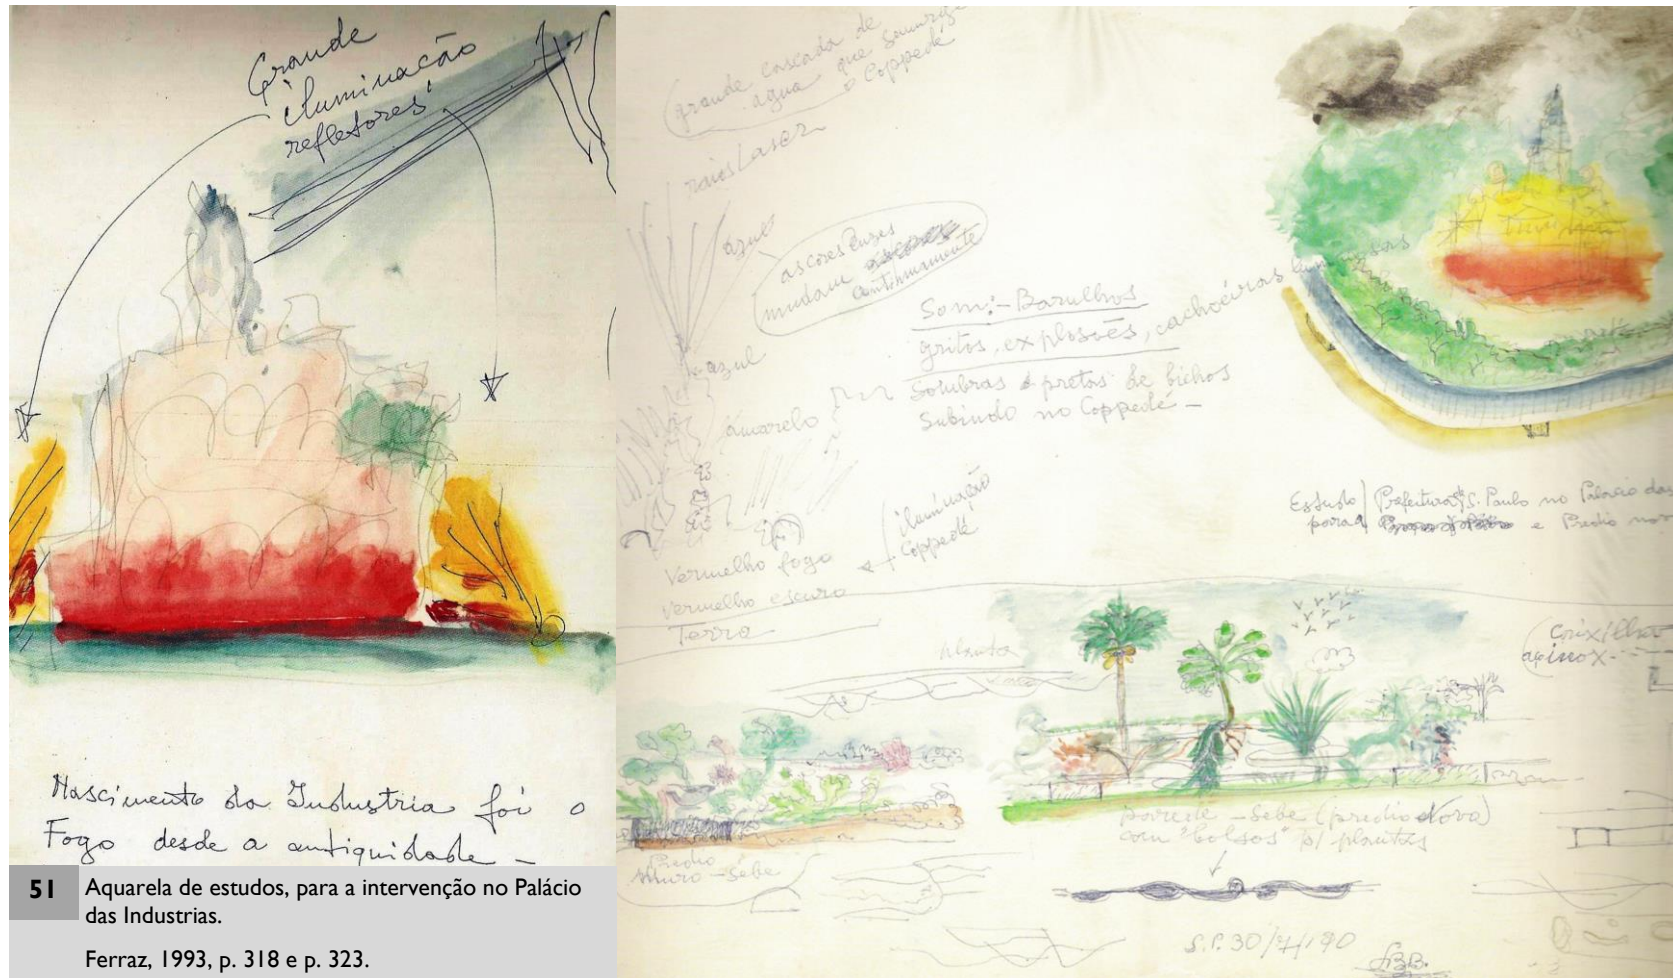 Grande
iluminação
refletores
Nascimento da Industria foi o
Fogo desde a antiguidade -
51 Aquarela de estudos, para a intervenção no Palácio
das Industrias.
Ferraz, 1993, p. 318 e p. 323.
(grande cascada de
agua que
o Coppedé
raios Laser
azul
as cores luzes
mudam
continuamente
azul
amarelo
Som:- Barulhos
gritos, explosões, cachoeiras
Sombras pretas de bichos
Subindo no Coppedé -
iluminação
Coppedé
Vermelho fogo
vermelho escuro
Terra
Estudo Prefeitura S. Paulo no Palacio das
para a e Predio
Caixilho
aço inox
parede - sebe (predio Novo)
com "bolsos" p/ plantas
Predio
- sebe
S.P. 30/7/190
LBB.